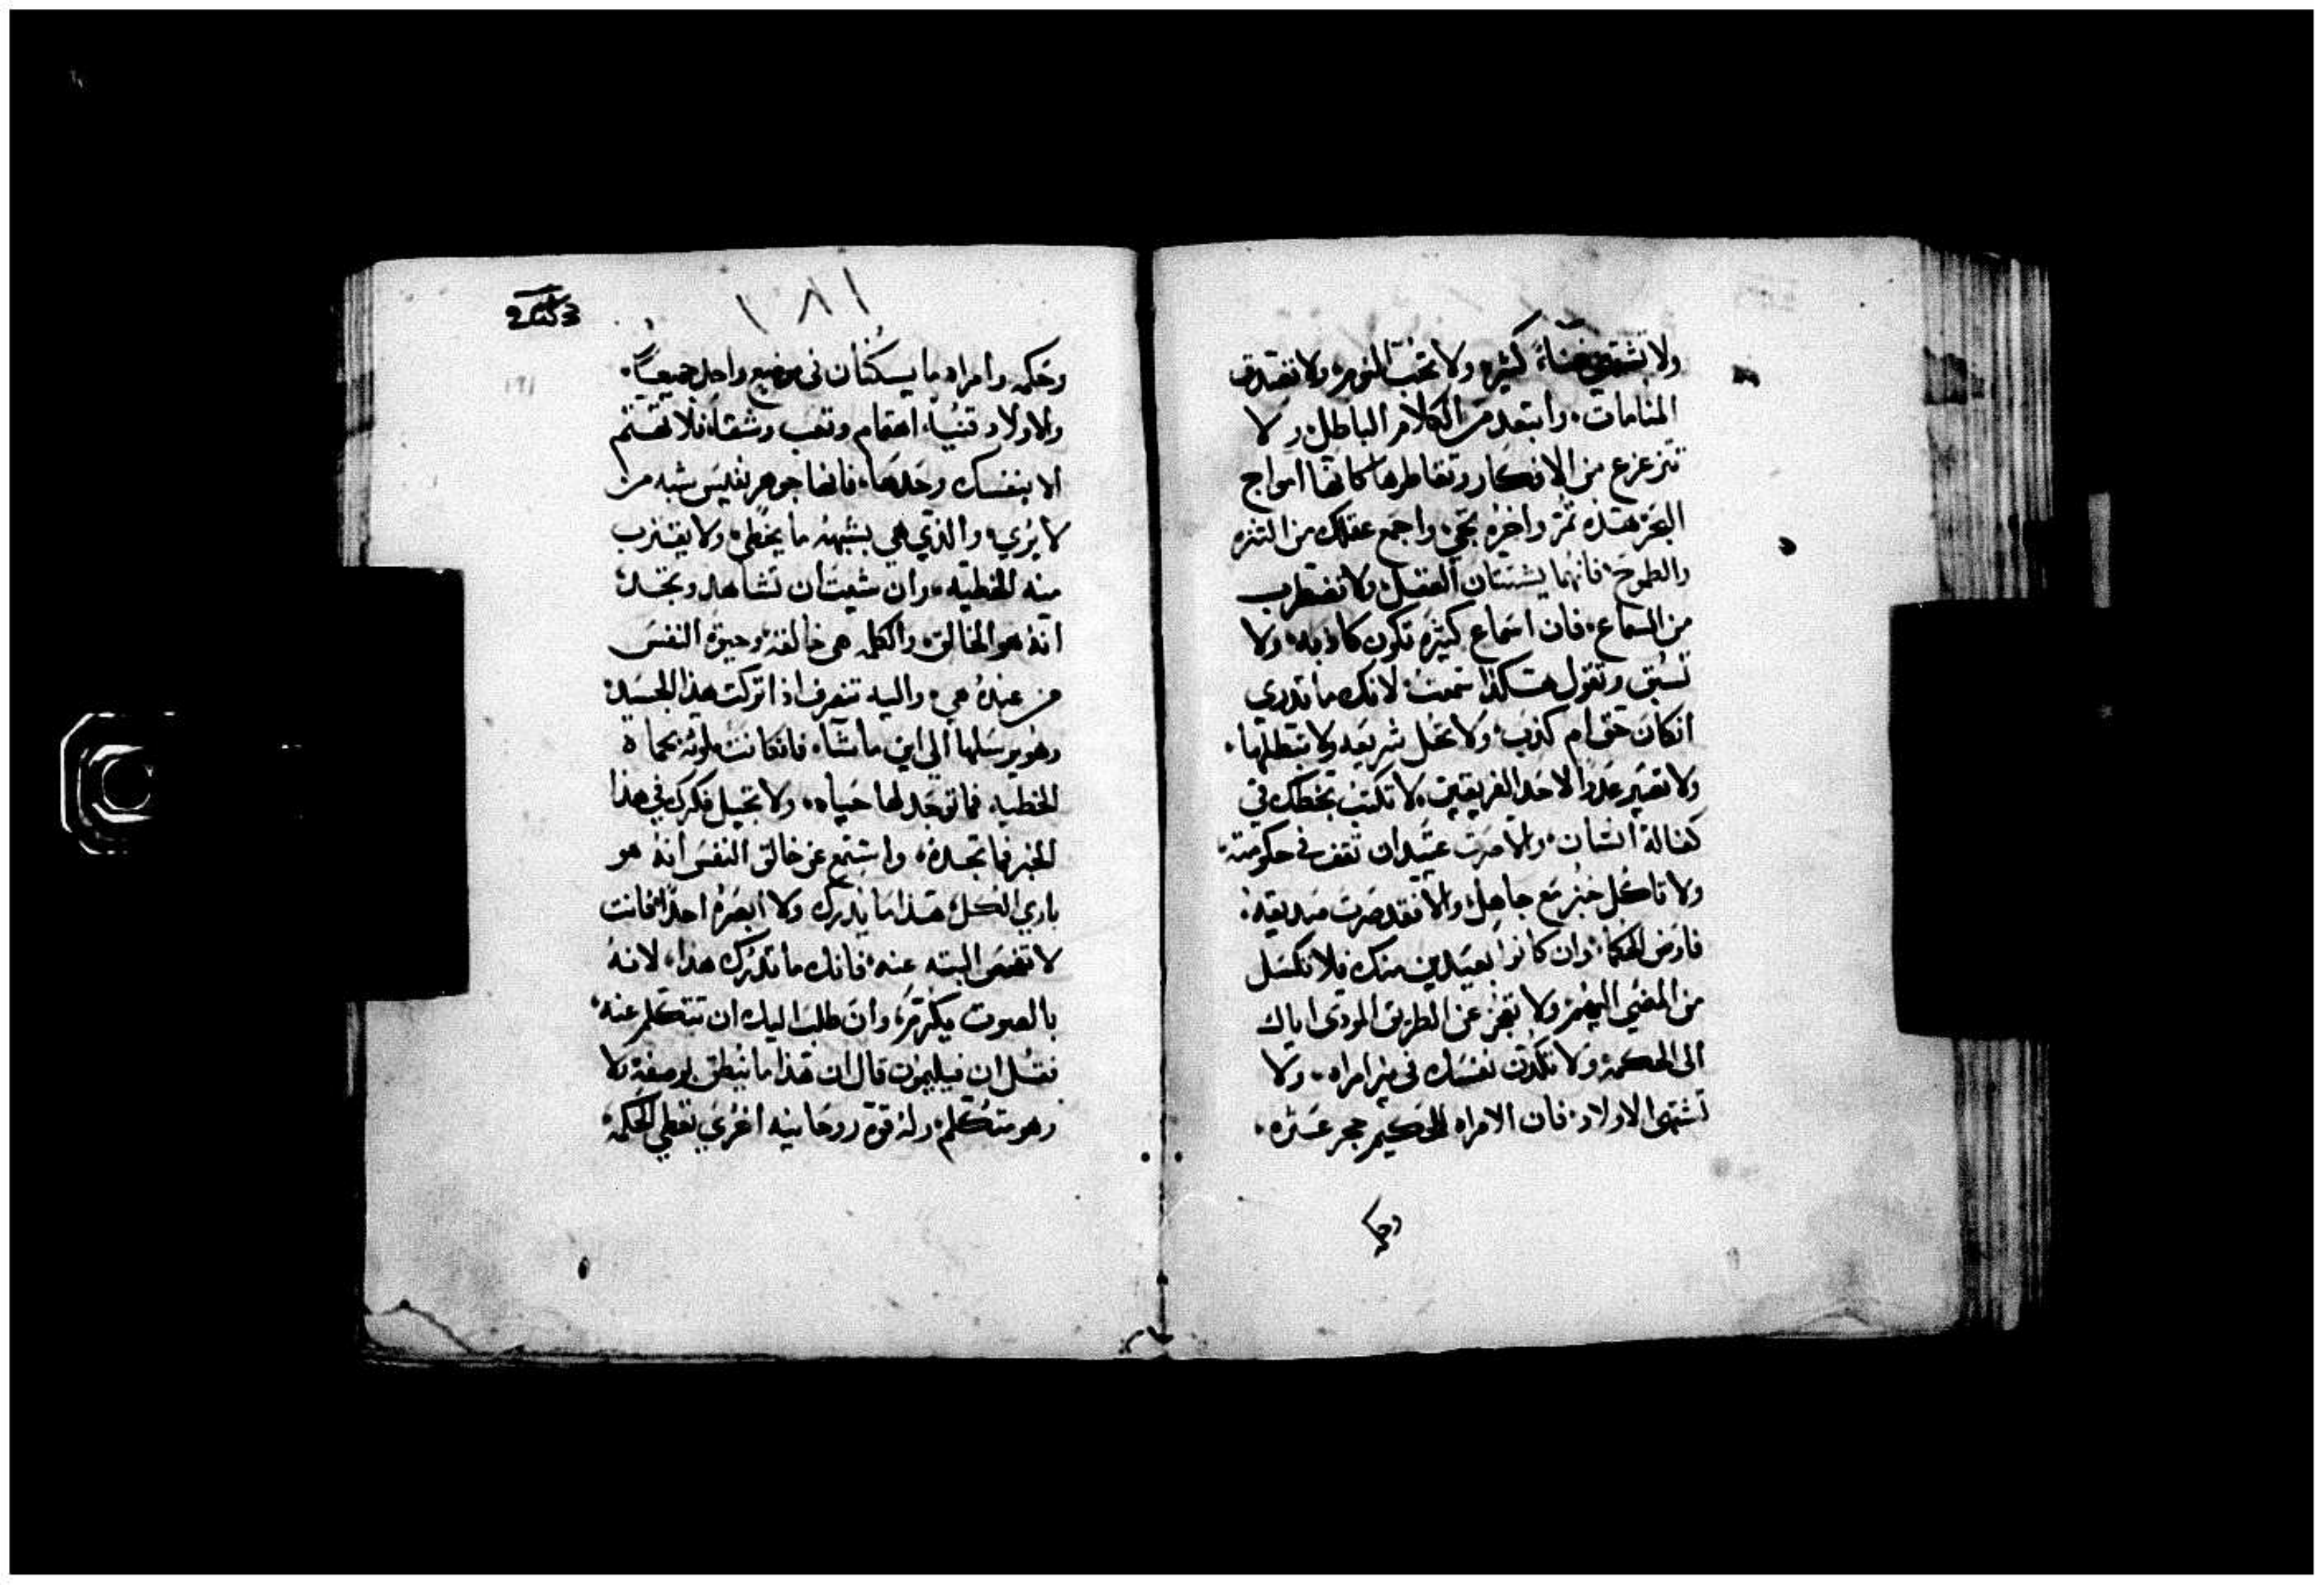 ولا تشتهي غناء كثيره ولا تحب النوم ولا تصدق
المنامات وابتعد من الكلام الباطل ولا
تتزعزع من الافكار وتقاطرها كانها امواج
البحر هذه تمر واخره تجي واجمع عقلك من التنزه
والطموح فانهما يشتتان العقل ولا تضطرب
من السماع فان اسماع كثيره تكون كاذبه ولا
تسبق وتقول هكذا سمعت لانك ما تدري
انكان حق ام كذب ولا تحل شريعه ولا تبطلها
ولا تصير عدوا لاحد الفريقين لا تكتب بخطك في
كفالة انسان والا صرت عتيدان تقف في حكومته
ولا تاكل خبز مع جاهل والا فقد صرت صديقه
فاوض الحكماء وان كانوا بعيدين منك فلا تكسل
من المضي اليهم ولا تعجز عن الطريق المودي اياك
الى الحكمه ولا تلدت نفسك في بير امراه ولا
تشتهي الاولاد فان الامراه للحكيم حجر عثره
وحكـ
١٨١
وحكمه وامراه ما يسكنان في موضع واحد جميعًا
والاولاد قنيا اهتمام وتعب وشقا فلا تهتم
الا بنفسك وحدها فانها جوهر نفيس شبه من
لا يري والذي هي بشبهه ما يخطي ولا يقترب
منه الخطيه وان شيت ان تشاهد وتجد
انه هو الخالق والكل هي خالقه وحيوة النفس
من عنده هي واليه تنصرف اذا تركت هذا الجسد
وهو يرسلها الى اين ما شاء فانكانت ملوثه بحماه
الخطيه فما توجد لها حياه ولا تجيل فكرك في هذا
الخبر فما تجده واستمع عن خالق النفس انه هو
باري الكل هذا ما يدرك ولا ابصره احدا فانت
لا تفحص البته عنه فانك ما تدرك هذا لانه
بالصوت يكرم وان طلب اليك ان تتكلم عنه
فقل ان فيليمون قال ان هذا ما ينطق بوصفه ولا
وهو متكلم وله قوة روحانيه اخري تعطي الحكمه